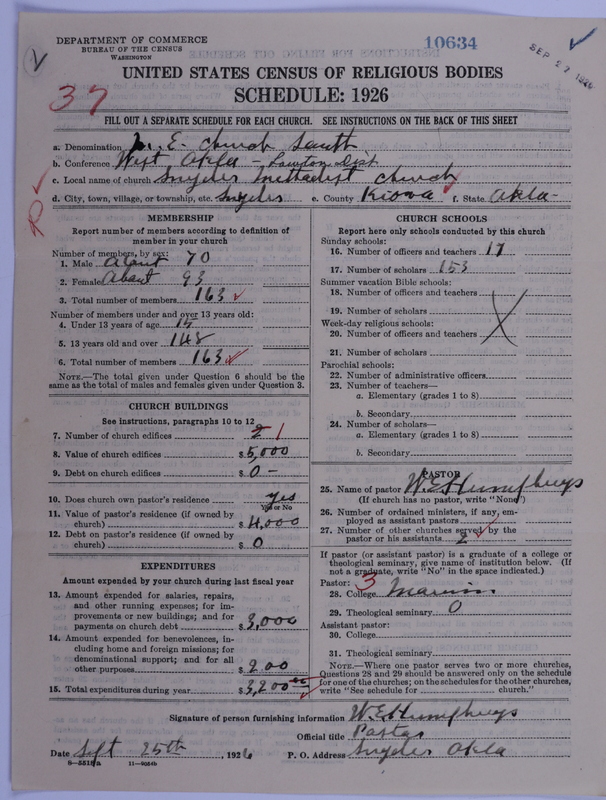 DEPARTMENT OF COMMERCE
BUREAU OF THE CENSUS
WASHINGTON
10634
SEP 27 1926
37
UNITED STATES CENSUS OF RELIGIOUS BODIES
SCHEDULE: 1926
FILL OUT A SEPARATE SCHEDULE FOR EACH CHURCH. SEE INSTRUCTIONS ON THE BACK OF THIS SHEET
a. Denomination M. E. Church South
b. Conference West Okla - Lawton Dist
c. Local name of church Snyder Methodist Church
d. City, town, village, or township, etc. Snyder e. County Kiowa f. State Okla-
MEMBERSHIP
Report number of members according to definition of member in your church
Number of members, by sex:
1. Male About 70
2. Female About 93
3. Total number of members 163
Number of members under and over 13 years old:
4. Under 13 years of age 15
5. 13 years old and over 148
6. Total number of members 163
NOTE.—The total given under Question 6 should be the same as the total of males and females given under Question 3.
CHURCH BUILDINGS
See instructions, paragraphs 10 to 12
7. Number of church edifices 2 1
8. Value of church edifices $ 5,000
9. Debt on church edifices $ 0 -
10. Does church own pastor's residence yes
Yes or No
11. Value of pastor's residence (if owned by church) $ 4,000
12. Debt on pastor's residence (if owned by church) $ 0
EXPENDITURES
Amount expended by your church during last fiscal year
13. Amount expended for salaries, repairs, and other running expenses; for improvements or new buildings; and for payments on church debt $ 3,000
14. Amount expended for benevolences, including home and foreign missions; for denominational support; and for all other purposes $ 200
15. Total expenditures during year $ 3,200 00
CHURCH SCHOOLS
Report here only schools conducted by this church
Sunday schools:
16. Number of officers and teachers 17
17. Number of scholars 153
Summer vacation Bible schools:
18. Number of officers and teachers
19. Number of scholars
Week-day religious schools:
20. Number of officers and teachers
21. Number of scholars
Parochial schools:
22. Number of administrative officers
23. Number of teachers—
a. Elementary (grades 1 to 8)
b. Secondary
24. Number of scholars—
a. Elementary (grades 1 to 8)
b. Secondary
PASTOR
25. Name of pastor W. E. Humphreys
(If church has no pastor, write "None")
26. Number of ordained ministers, if any, employed as assistant pastors
27. Number of other churches served by the pastor or his assistants 2
If pastor (or assistant pastor) is a graduate of a college or theological seminary, give name of institution below. (If not a graduate, write "No" in the space indicated.)
Pastor: 3
28. College
29. Theological seminary 0
Assistant pastor:
30. College
31. Theological seminary
NOTE.—Where one pastor serves two or more churches, Questions 28 and 29 should be answered only on the schedule for one of the churches; on the schedules for the other churches, write "See schedule for ______ church."
Signature of person furnishing information W. E. Humphreys
Official title Pastor
Date Sept 25th, 1926 P. O. Address Snyder Okla
8—551ª 11—9054b